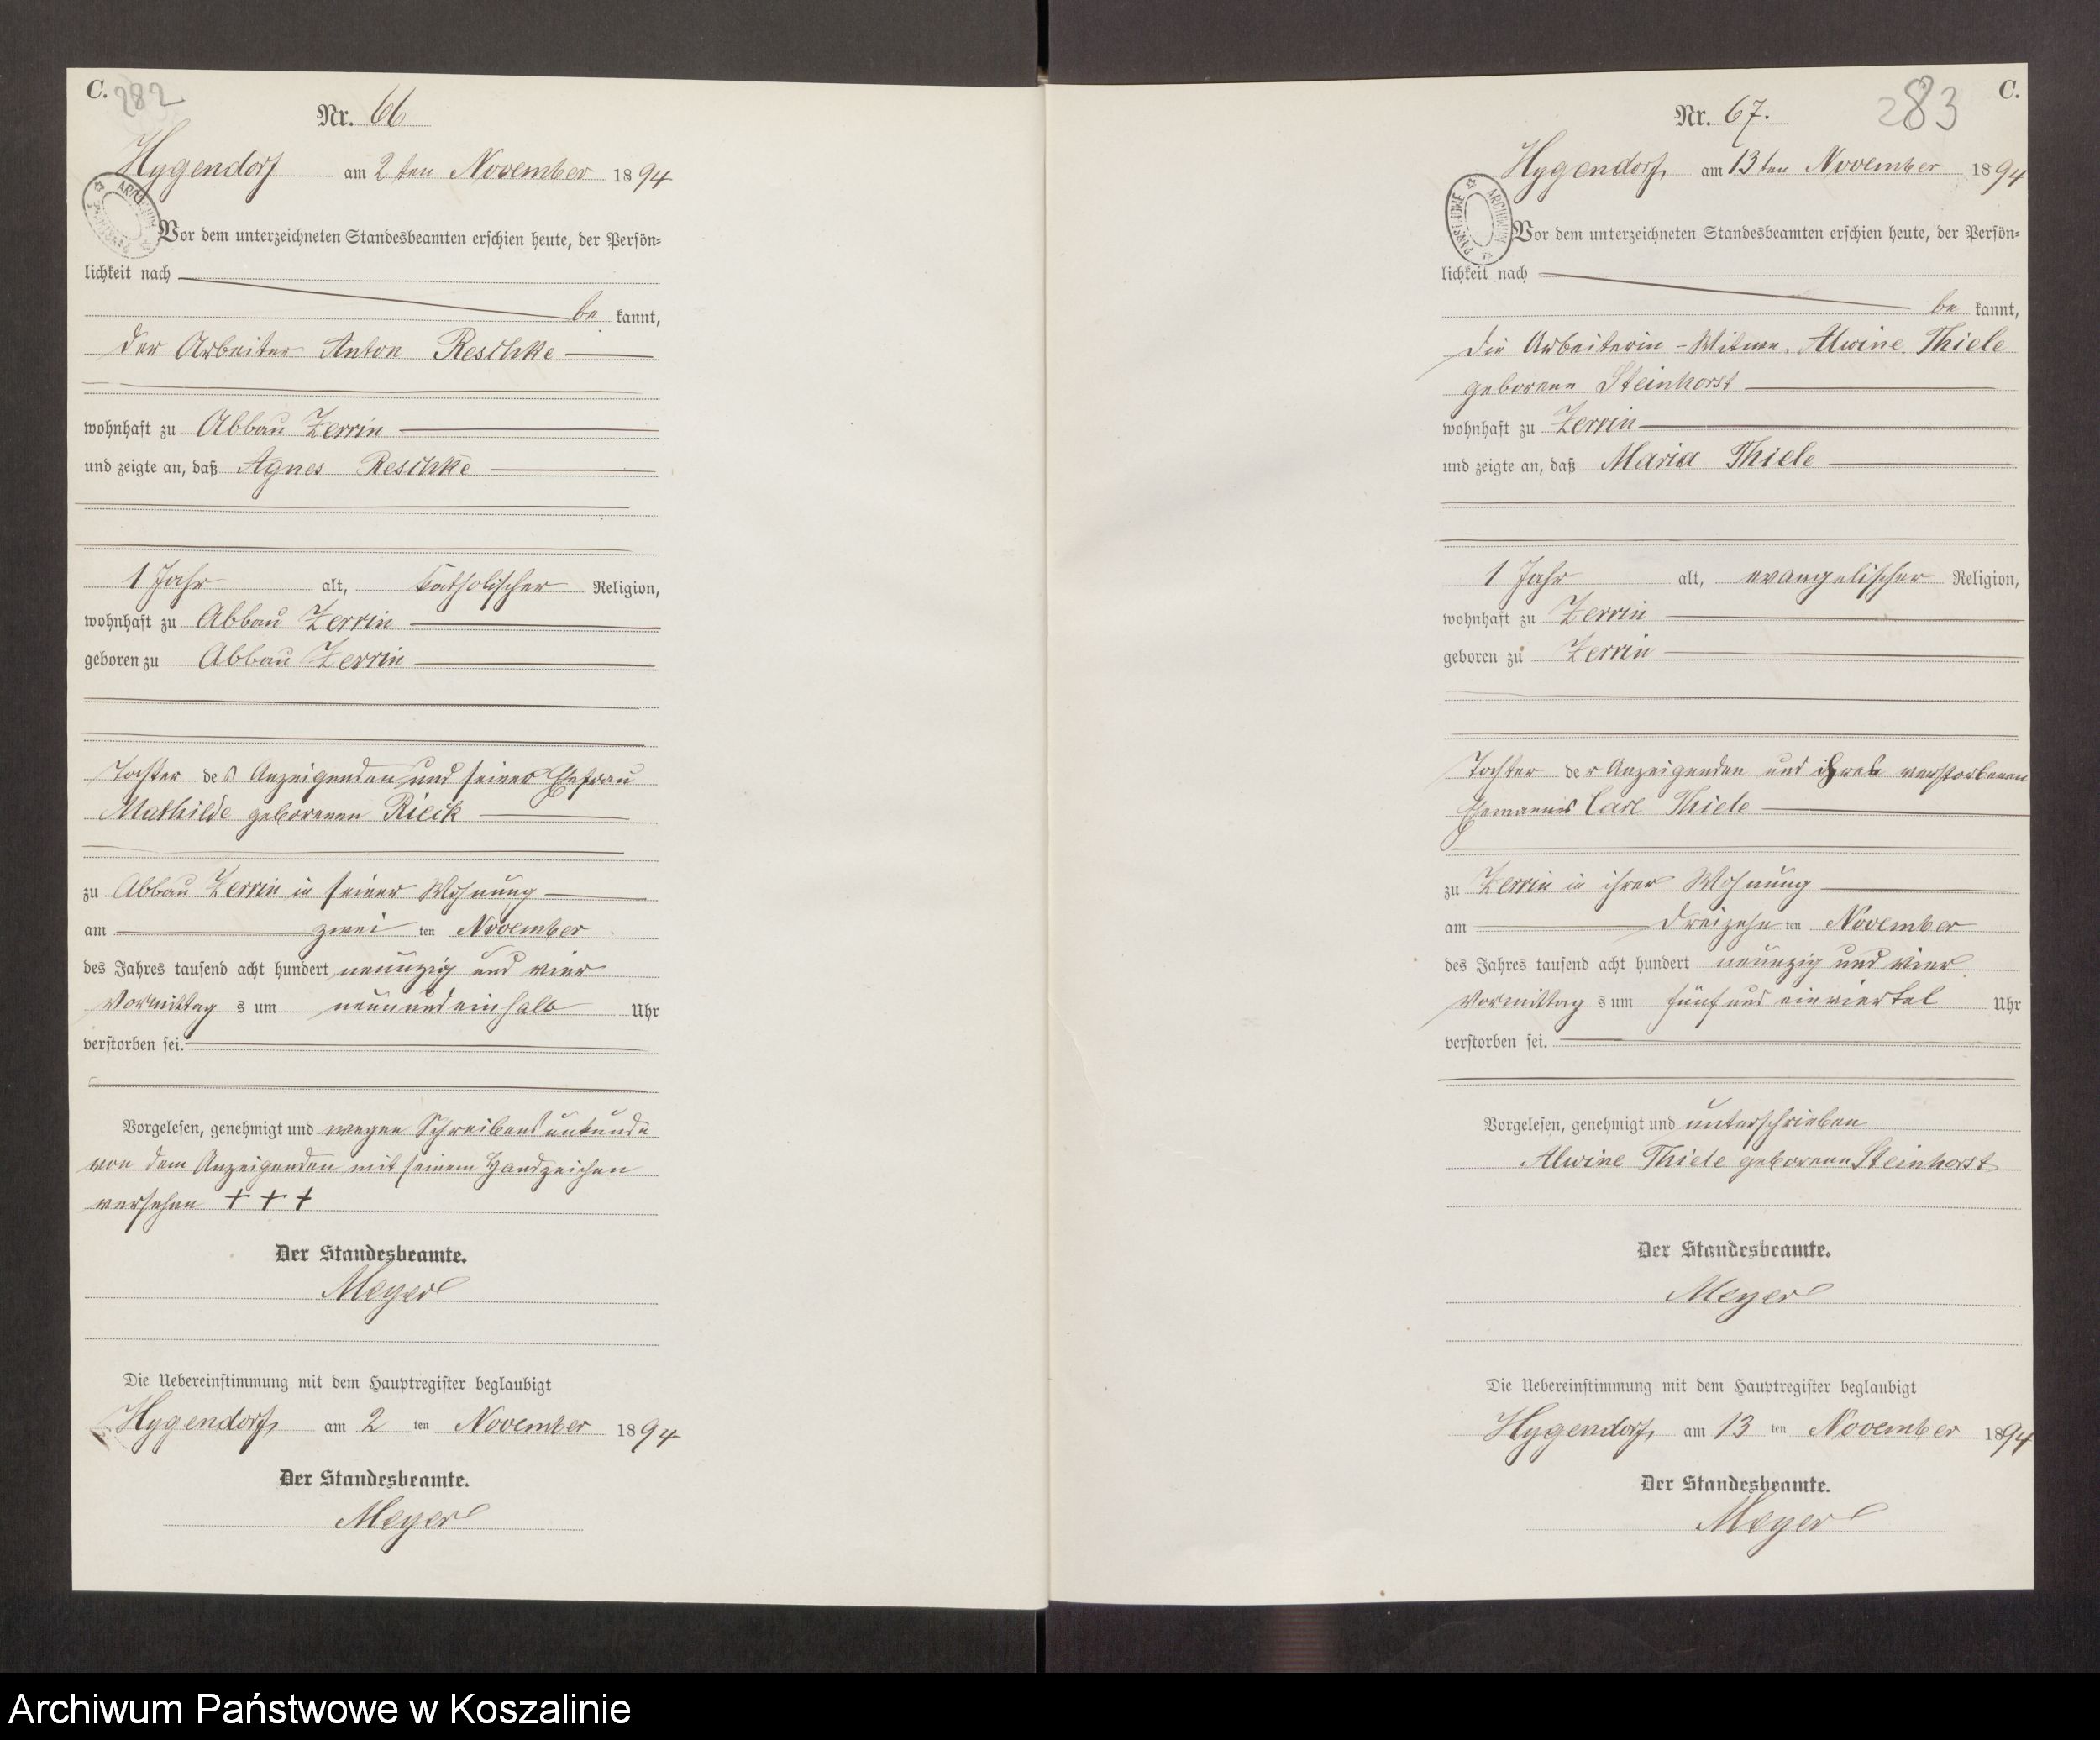 C. 282
Nr. 66
Hygendorf am 2 ten November 1894
ARCHIWUM PAŃSTWOWE
Vor dem unterzeichneten Standesbeamten erschien heute, der Persön-
lichkeit nach
be kannt,
der Arbeiter Anton Reschke
wohnhaft zu Abbau Zerrin
und zeigte an, daß Agnes Reschke
1 Jahr alt, katholischer Religion,
wohnhaft zu Abbau Zerrin
geboren zu Abbau Zerrin
Tochter des Anzeigenden und seiner Ehefrau
Mathilde geborenen Rieck
zu Abbau Zerrin in seiner Wohnung
am zwei ten November
des Jahres tausend acht hundert neunzig und vier
Vormittag s um neun und ein halb Uhr
verstorben sei.
Vorgelesen, genehmigt und wegen Schreibensunkunde
von dem Anzeigenden mit seinem Handzeichen
versehen + + +
Der Standesbeamte.
Meyer
Die Uebereinstimmung mit dem Hauptregister beglaubigt
Hygendorf, am 2 ten November 1894
Der Standesbeamte.
Meyer
283 C.
Nr. 67.
Hygendorf, am 13 ten November 1894
ARCHIWUM PAŃSTWOWE
Vor dem unterzeichneten Standesbeamten erschien heute, der Persön-
lichkeit nach
be kannt,
die Arbeiterin-Witwe, Alwine Thiele
geborene Steinhorst
wohnhaft zu Zerrin
und zeigte an, daß Maria Thiele
1 Jahr alt, evangelischer Religion,
wohnhaft zu Zerrin
geboren zu Zerrin
Tochter der Anzeigenden und ihres verstorbenen
Ehemannes Carl Thiele
zu Zerrin in ihrer Wohnung
am dreizehn ten November
des Jahres tausend acht hundert neunzig und vier
Vormittag s um fünf und ein viertel Uhr
verstorben sei.
Vorgelesen, genehmigt und unterschrieben
Alwine Thiele geborene Steinhorst
Der Standesbeamte.
Meyer
Die Uebereinstimmung mit dem Hauptregister beglaubigt
Hygendorf, am 13 ten November 1894
Der Standesbeamte.
Meyer
Archiwum Państwowe w Koszalinie